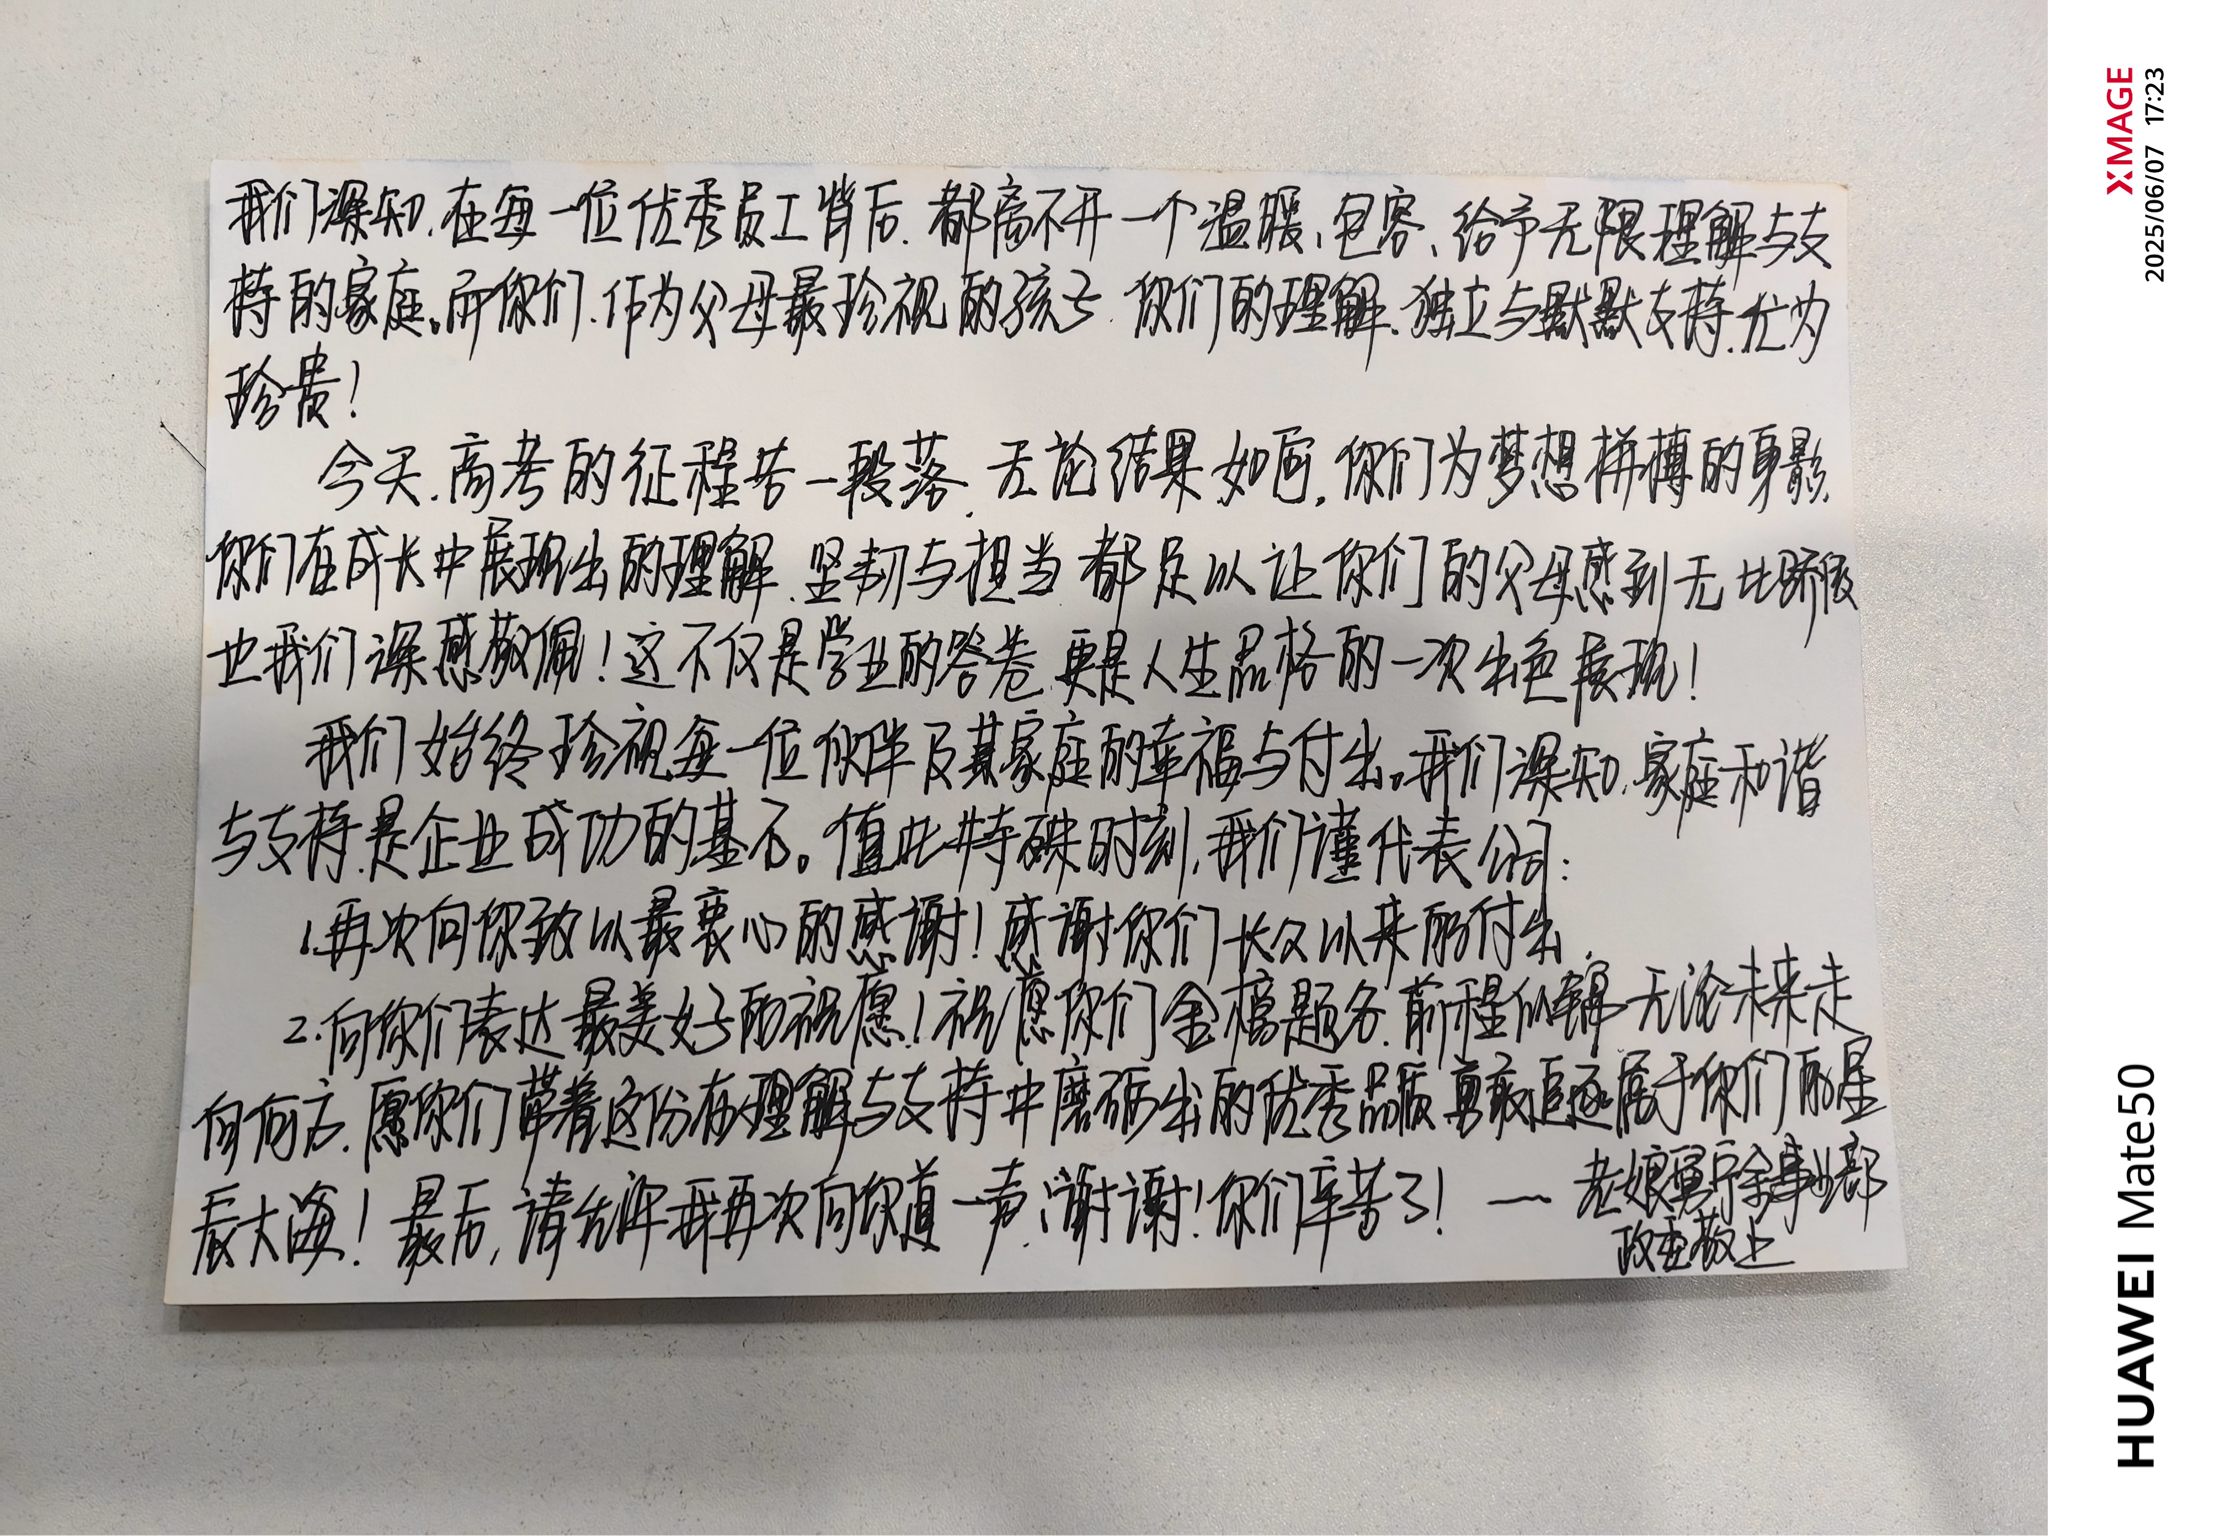 我们深知,在每一位优秀员工背后,都离不开一个温暖、包容、给予无限理解与支
持的家庭。而你们,作为父母最珍视的孩子,你们的理解、独立与默默支持,尤为
珍贵!
今天,高考的征程告一段落,无论结果如何,你们为梦想拼搏的身影,
你们在成长中展现出的理解、坚韧与担当都足以让你们的父母感到无比骄傲
也我们深感敬佩!这不仅是学业的答卷,更是人生品格的一次出色展现!
我们始终珍视每一位伙伴及其家庭的幸福与付出。我们深知,家庭和谐
与支持,是企业成功的基石。值此特殊时刻,我们谨代表公司:
1.再次向你致以最衷心的感谢!感谢你们长久以来的付出.
2.向你们表达最美好的祝愿!祝愿你们金榜题名,前程似锦 无论未来走
向何方,愿你们带着这份在理解与支持中磨砺出的优秀品质 勇敢追逐属于你们的星
辰大海!最后,请允许我再次向你道一声:谢谢!你们辛苦了! 一 老娘舅宁余事业部
政委敬上
XMAGE
2025/06/07 17:23
HUAWEI Mate50